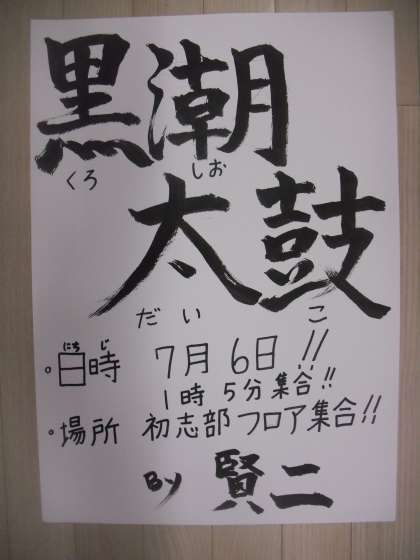 黒潮
くろ しお
太鼓
だいこ
にち じ
。日時 7月6日!!
1時5分集合!!
。場所 初志部フロア集合!!
By 賢二